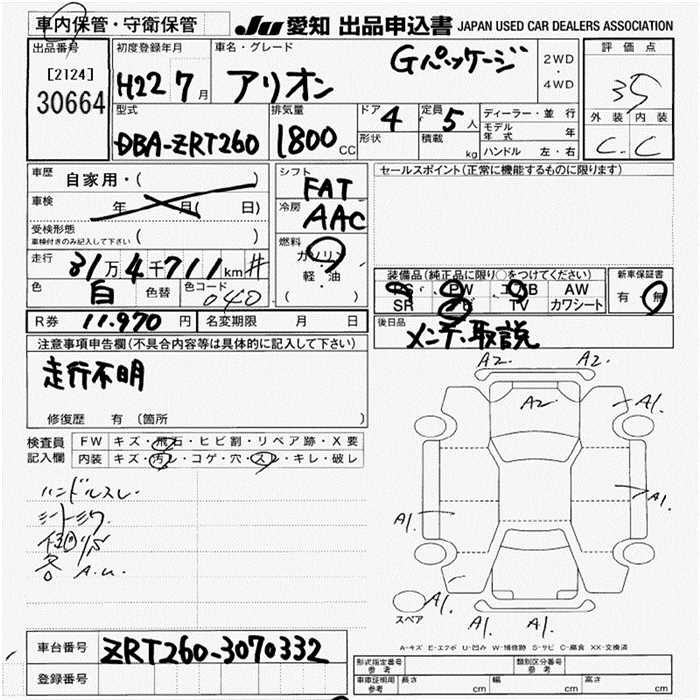 車内保管・守衛保管
JU 愛知 出品申込書 JAPAN USED CAR DEALERS ASSOCIATION
出品番号 初度登録年月 車名・グレード 評価点
[2124] Gパッケージ 2WD
30664 H22 7月 アリオン 4WD
35
型式 排気量 ドア 4 定員 5人 ディーラー・並行 外装 内装
DBA-ZRT260 1800CC 形状 積載 kg モデル年式 年 C. C
ハンドル 左・右
車歴 自家用・( ) シフト FAT セールスポイント(正常に機能するものに限ります)
車検 年 月( 日) 冷房 AAC
受検形態 ( )
車検付きのみ記入して下さい
燃料 ガソリン
走行 31万4千711km # 軽・油
色 白 色替 色コード 040 ( )
装備品(純正品に限り○をつけてください) 新車保証書
PS PW エアB AW 有 無
SR ナビ TV カワシート
R券 11.970円 名変期限 月 日
後日品 メンテ・取説
注意事項申告欄(不具合内容等は具体的に記入して下さい)
走行不明
修復歴 有 (箇所 )
検査員 FW キズ・飛石・ヒビ割・リペア跡・X要
記入欄 内装 キズ・汚レ・コゲ・穴・スレ・キレ・破レ
ハンドルスレ
A.U.
A2. A2.
A2. A1.
A1. A1.
A1.
A1. A1.
スペア
A-キズ E-エクボ U-凹み W-補修跡 S-サビ C-腐食 XX-交換済
車台番号 ZRT260-3070332
登録番号
形式指定番号 参考 類別区分番号 参考
車庫証明用 参考 長さ cm 幅 cm 高さ cm